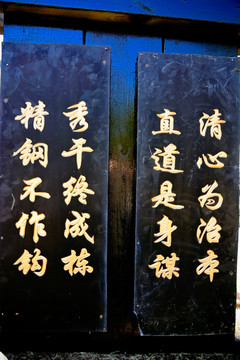 清心为治本
直道是身谋
秀干终成栋
精钢不作钩